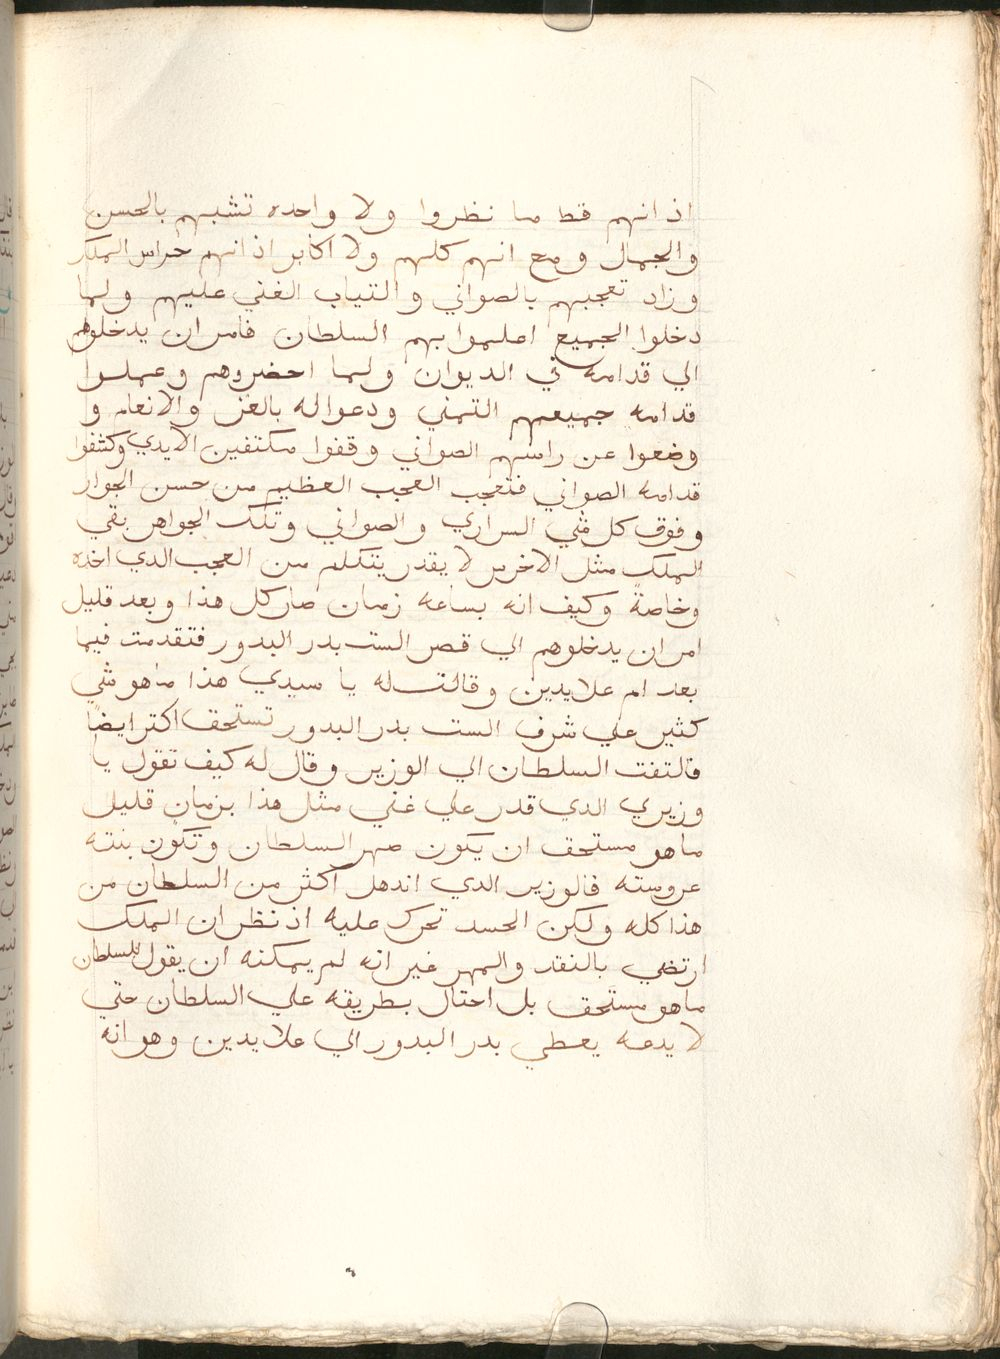 اذ انهم قط ما نظروا ولا واحده تشبهم بالحسن
والجمال ومع انهم كلهم ولا اكابر اذ انهم حراس الملك
وزاد تعجبهم بالصواني والتياب الغني عليهم ولما
دخلوا الجميع اعلموا بهم السلطان فامر ان يدخلوهم
الي قدامه في الديوان ولما احضروهم وعملوا
قدامه جميعهم التمني ودعواله بالعز والانعام و
وضعوا عن راسهم الصواني وقفوا مكتفين الايدي وكشفوا
قدامه الصواني فتعجب العجب العظيم من حسن الجوار
وفوق كل شي السراري والصواني وتلك الجواهر بقي
الملك مثل الاخرس لا يقدر يتكلم من العجب الدي اخده
وخاصةً وكيف انه بساعه زمان صار كل هذا وبعد قليل
امر ان يدخلوهم الي قصر الست بدر البدور فتقدمت فيما
بعد ام علايدين وقالت له يا سيدي هذا ماهو شي
كثير علي شرف الست بدر البدور تستحق اكتر ايضاً
فالتفت السلطان الي الوزير وقال له كيف تقول يا
وزيري الدي قدر علي غني مثل هذا بزمان قليل
ماهو مستحق ان يكون صهر السلطان وتكون بنته
عروسته فالوزير الدي اندهل اكثر من السلطان من
هذا كله ولكن الحسد تحرك عليه اذ نظر ان الملك
ارتضي بالنقد والمهر غير انه لم يمكنه ان يقول للسلطان
ماهو مستحق بل احتال بطريقه علي السلطان حتي
لا يدعه يعطي بدر البدور الي علايدين وهو انه